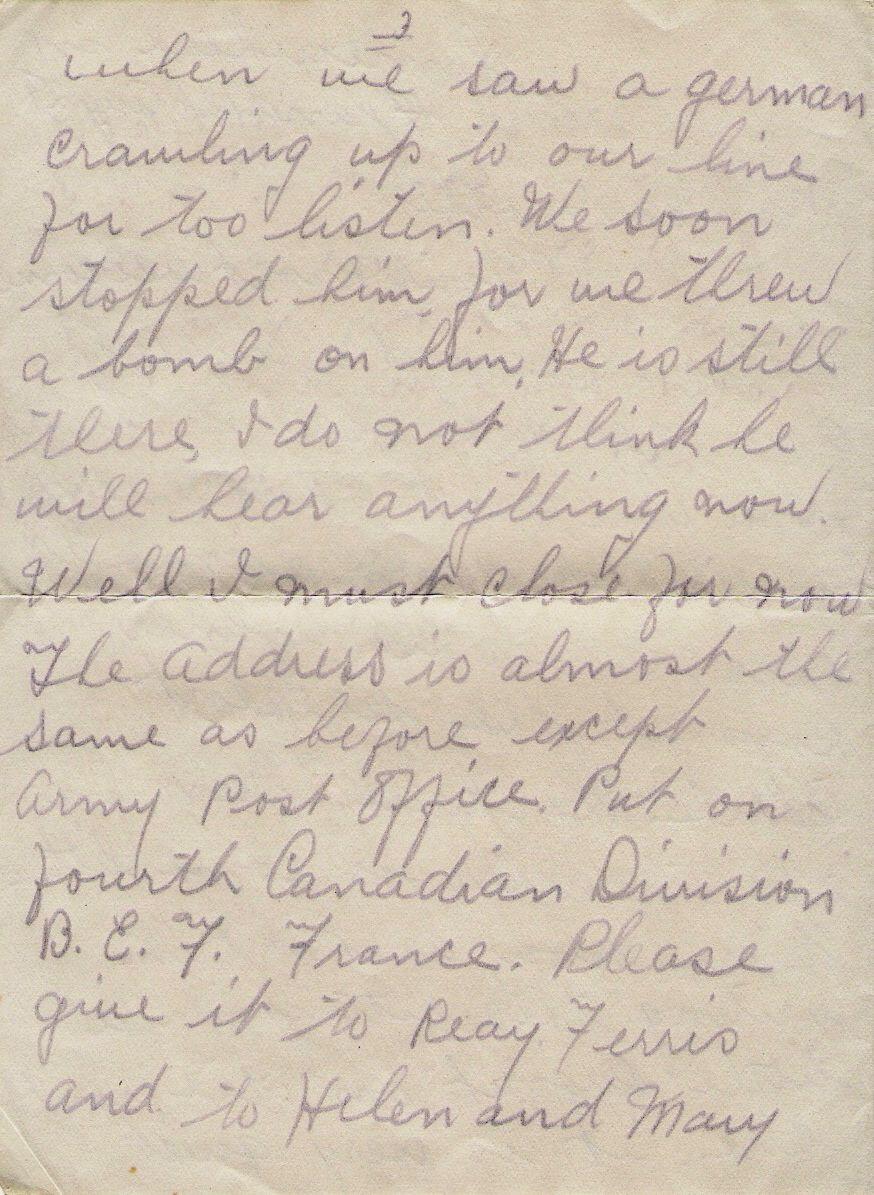 3
when we saw a german
crawling up to our line
for too listen. We soon
stopped him, for we threw
a bomb on him, He is still
there, I do not think he
will hear anything now.
Well I must close for now
The address is almost the
same as before except
Army Post Office. Put on
fourth Canadian Division
B. E. F. France. Please
give it to Reay Ferris
and to Helen and Mary